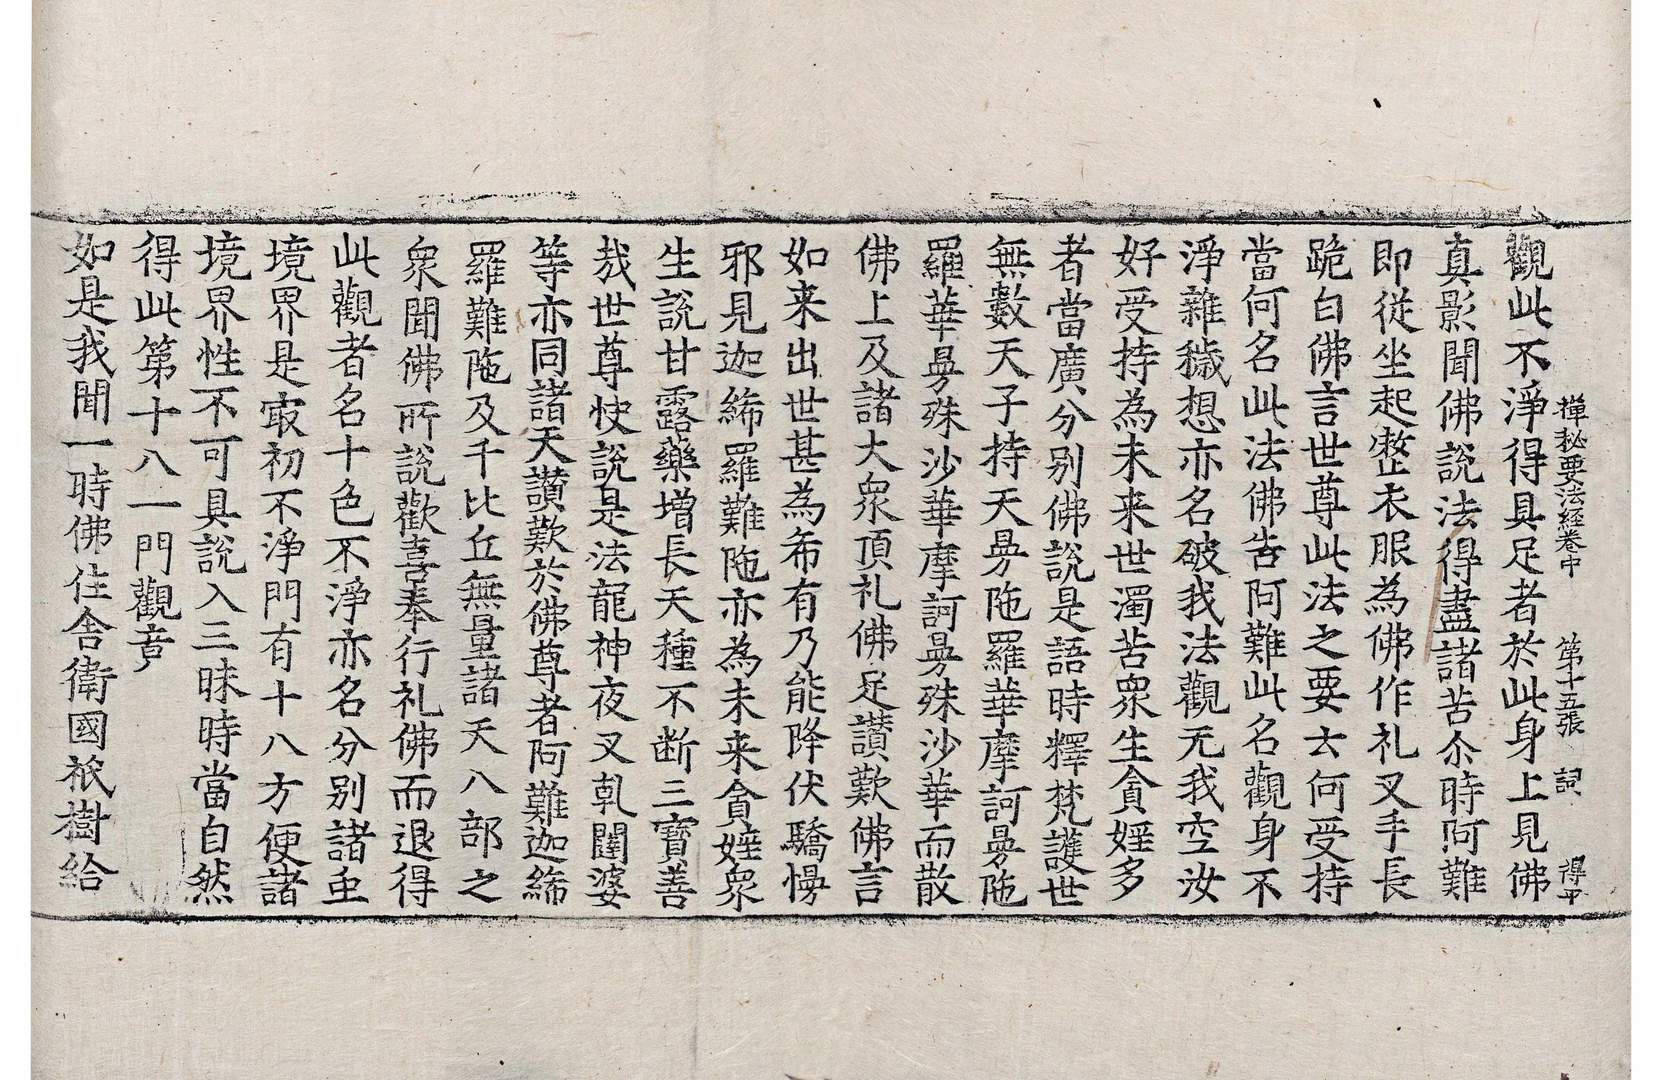 禪秘要法經卷中　第十五張　詞　得平
觀此不淨得具足者於此身上見佛
真影聞佛說法得盡諸苦尒時阿難
即從坐起整衣服為佛作礼叉手長
跪白佛言世尊此法之要云何受持
當何名此法佛告阿難此名觀身不
淨雜穢想亦名破我法觀无我空汝
好受持為未来世濁苦衆生貪婬多
者當廣分別佛說是語時釋梵護世
無數天子持天曼陁羅華摩訶曼陁
羅華曼殊沙華摩訶曼殊沙華而散
佛上及諸大衆頂礼佛足讃歎佛言
如来出世甚為希有乃能降伏驕慢
邪見迦絺羅難陁亦為未来貪婬衆
生說甘露藥增長天種不断三寶善
㢤世尊快說是法龍神夜叉乹闥婆
等亦同諸天讃歎於佛尊者阿難迦絺
羅難陁及千比丘無量諸天八部之
衆聞佛所說歡喜奉行礼佛而退得
此觀者名十色不淨亦名分別諸虫
境界是㝡初不淨門有十八方便諸
境界性不可具說入三昧時當自然
得此第十八一門觀竟
如是我聞一時佛住舍衛國祇樹給